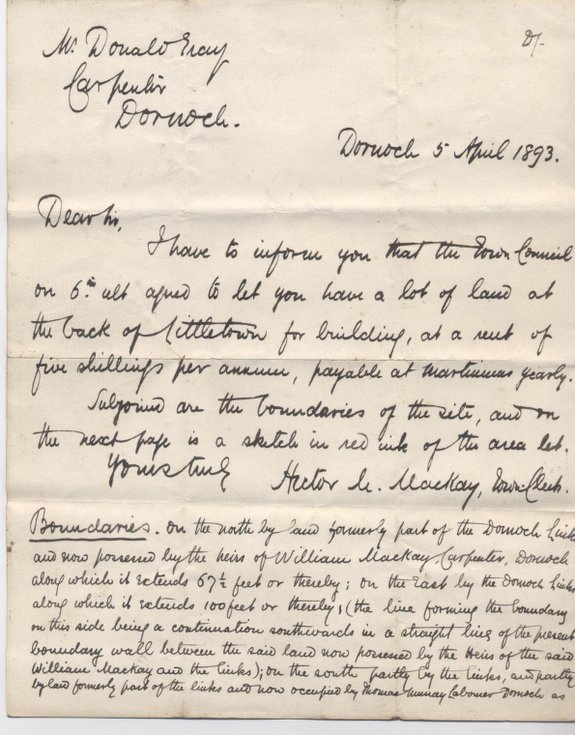 Mr Donald Gray
Carpenter
Dornoch.
Dornoch 5 April 1893.
Dear Sir,
I have to inform you that the Town Council
on 6th ult agreed to let you have a lot of land at
the back of Littletown for building, at a rent of
five shillings per annum, payable at Martinmas yearly.
Subjoined are the boundaries of the site, and on
the next page is a sketch in red ink of the area let.
Yours truly
Hector M. MacKay, Town Clerk.
Boundaries. On the north by land formerly part of the Dornoch Links
and now possessed by the heirs of William Mackay, Carpenter, Dornoch
along which it extends 67½ feet or thereby; on the East by the Dornoch Links
along which it extends 100 feet or thereby; (the line forming the boundary
on this side being a continuation southwards in a straight line of the present
boundary wall between the said land now possessed by the Heirs of the said
William Mackay and the links); on the south partly by the links, and partly
by land formerly part of the links and now occupied by Thomas Murray Labourer Dornoch as